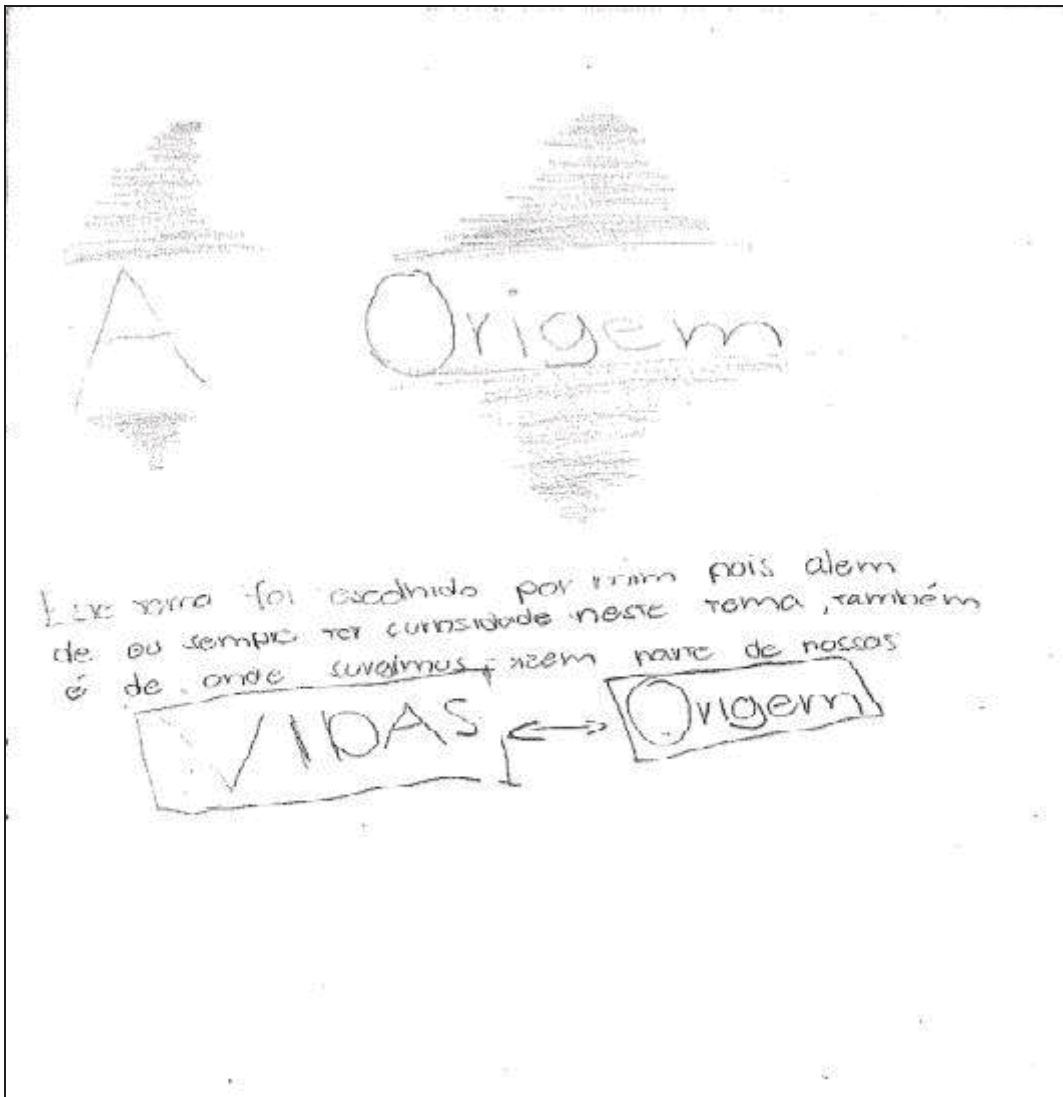 A Origem
Este tema foi escolhido por mim pois alem
de eu sempre ter curiosidade neste tema, também
é de onde surgimos, parte de nossas
VIDAS ↔ Origem